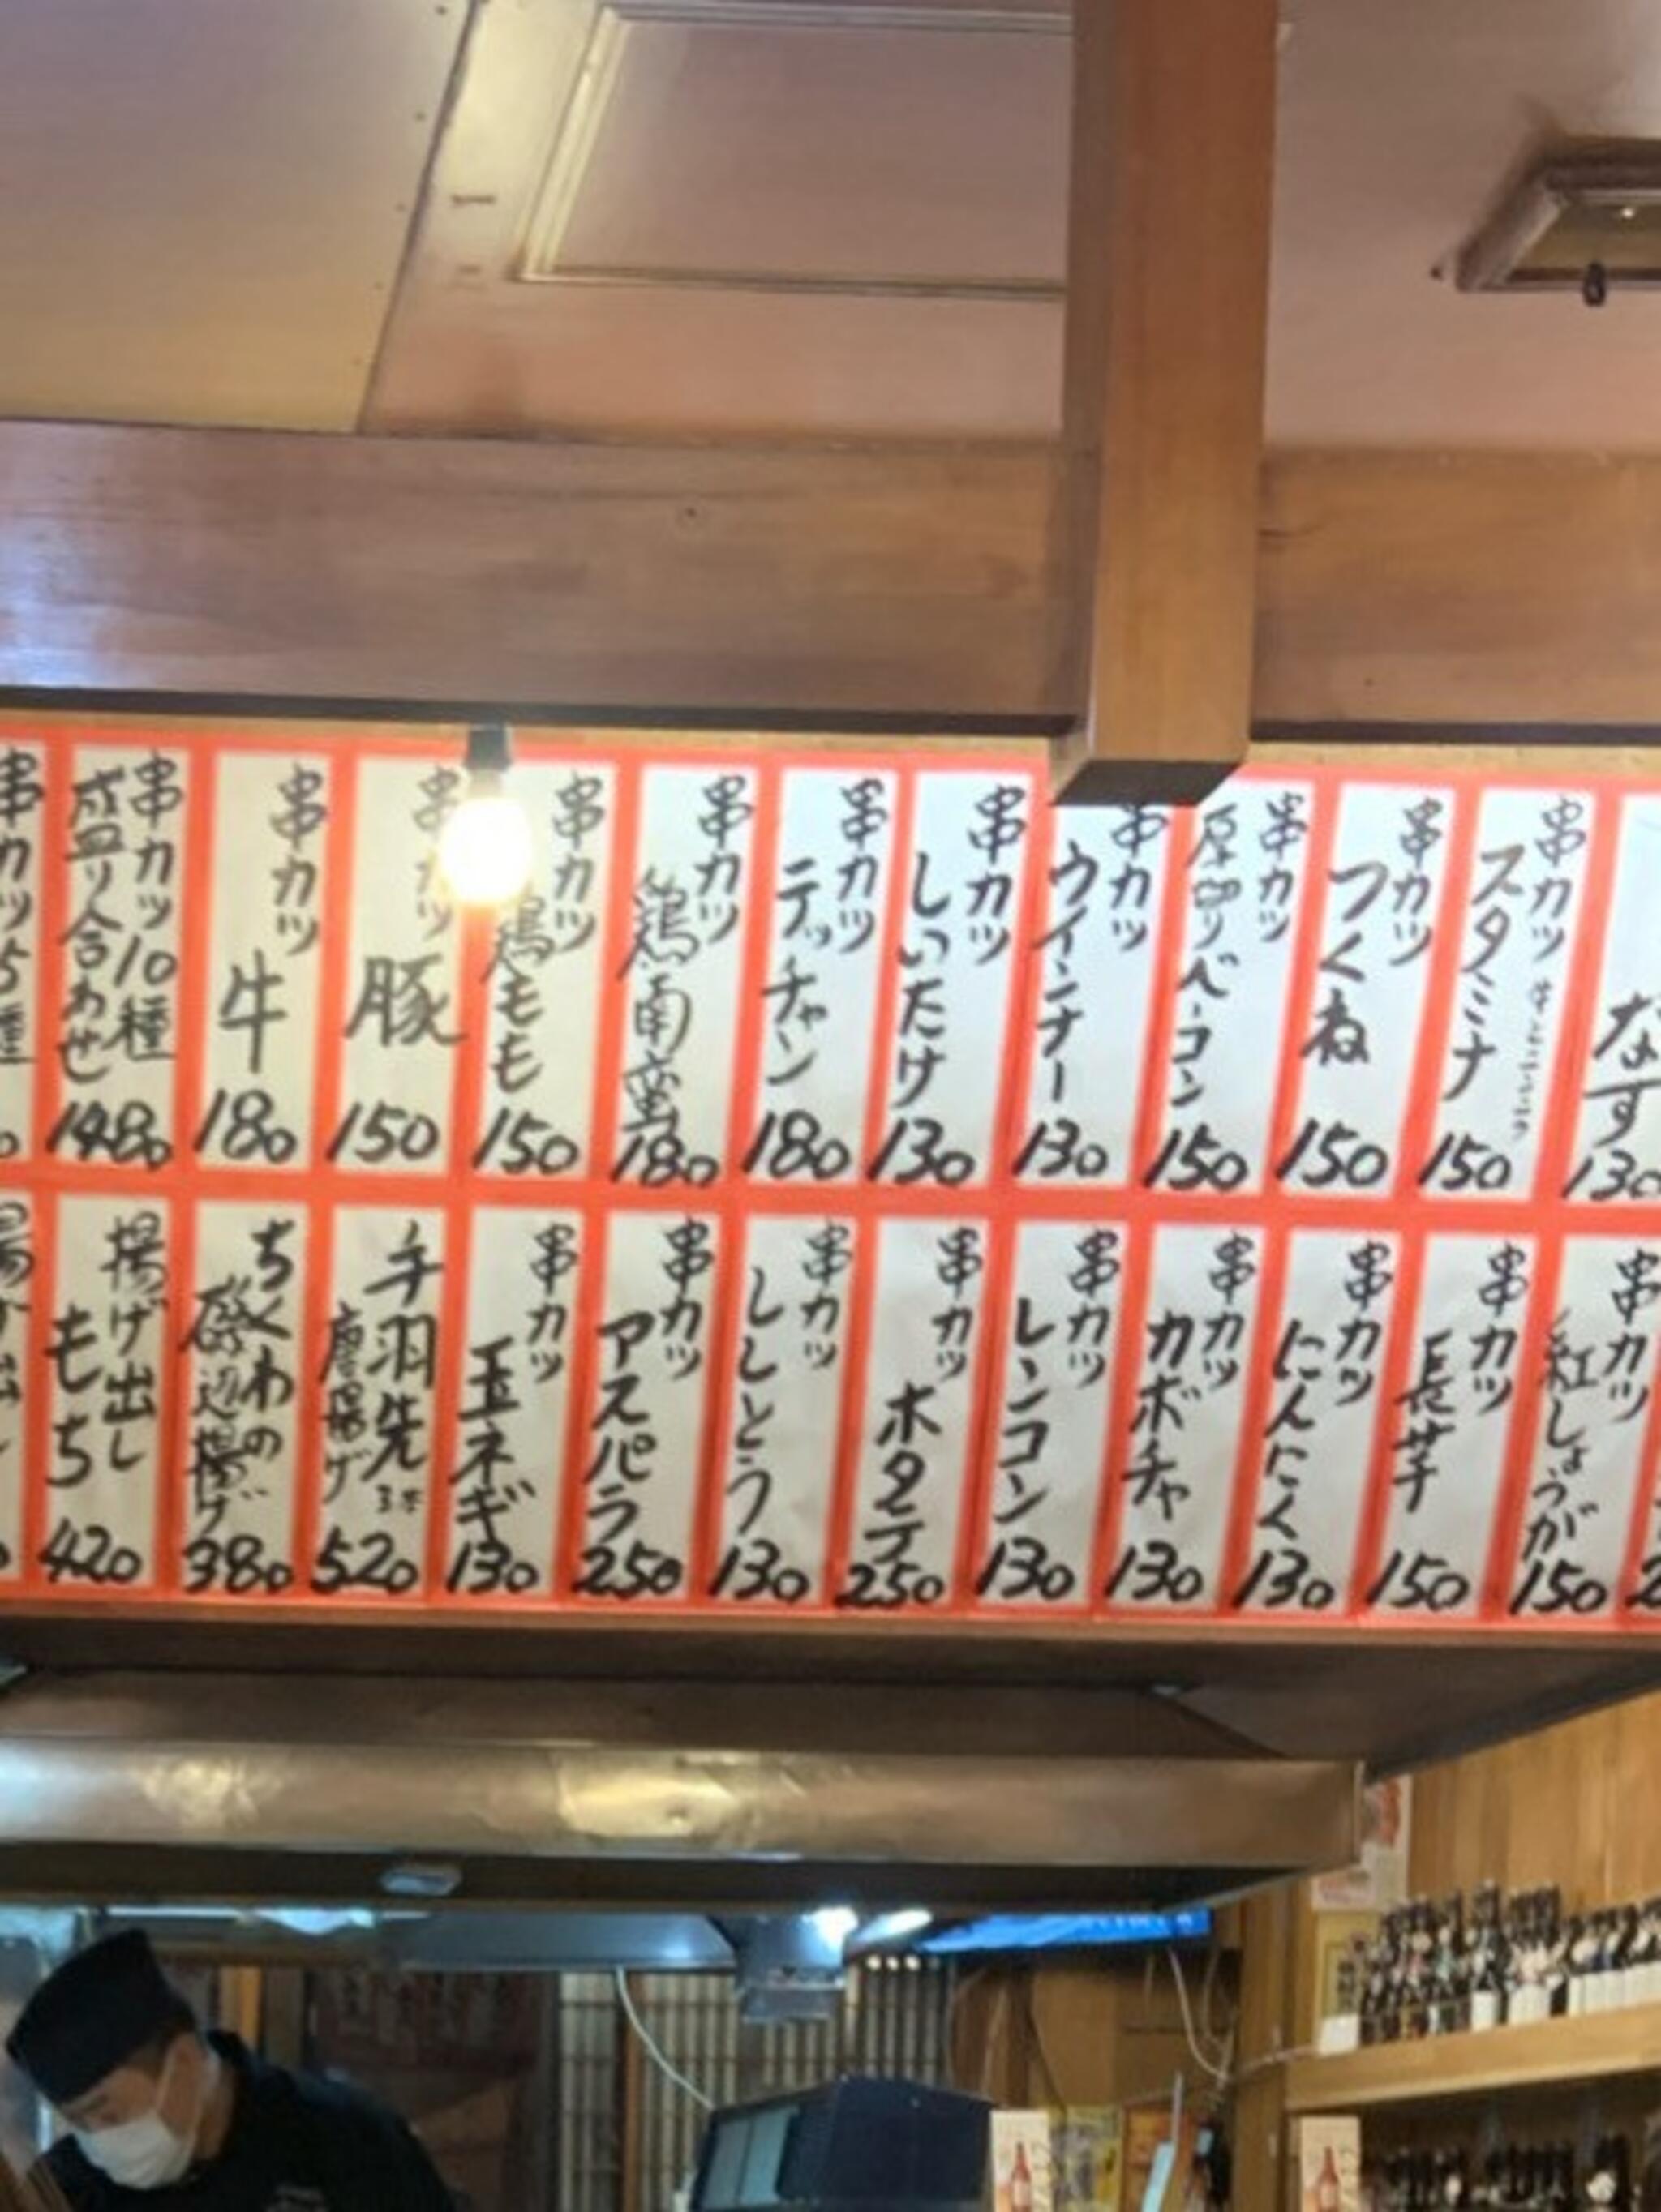 串カツ
なす
130
串カツ
スタミナ
150
串カツ
つくね
150
串カツ
厚切りベーコン
150
串カツ
ウインナー
130
串カツ
しいたけ
130
串カツ
テッチャン
180
串カツ
鶏南蛮
180
串カツ
鶏もも
150
串カツ
豚
150
串カツ
牛
180
串カツ10種
盛り合わせ
1480
串カツ5種
串カツ
紅しょうが
150
串カツ
長芋
150
串カツ
にんにく
130
串カツ
カボチャ
130
串カツ
レンコン
130
串カツ
ホタテ
250
串カツ
ししとう
130
串カツ
アスパラ
250
串カツ
玉ネギ
130
手羽先
唐揚げ
520
ちくわの
磯辺揚げ
380
揚げ出し
もち
420
揚げ出し